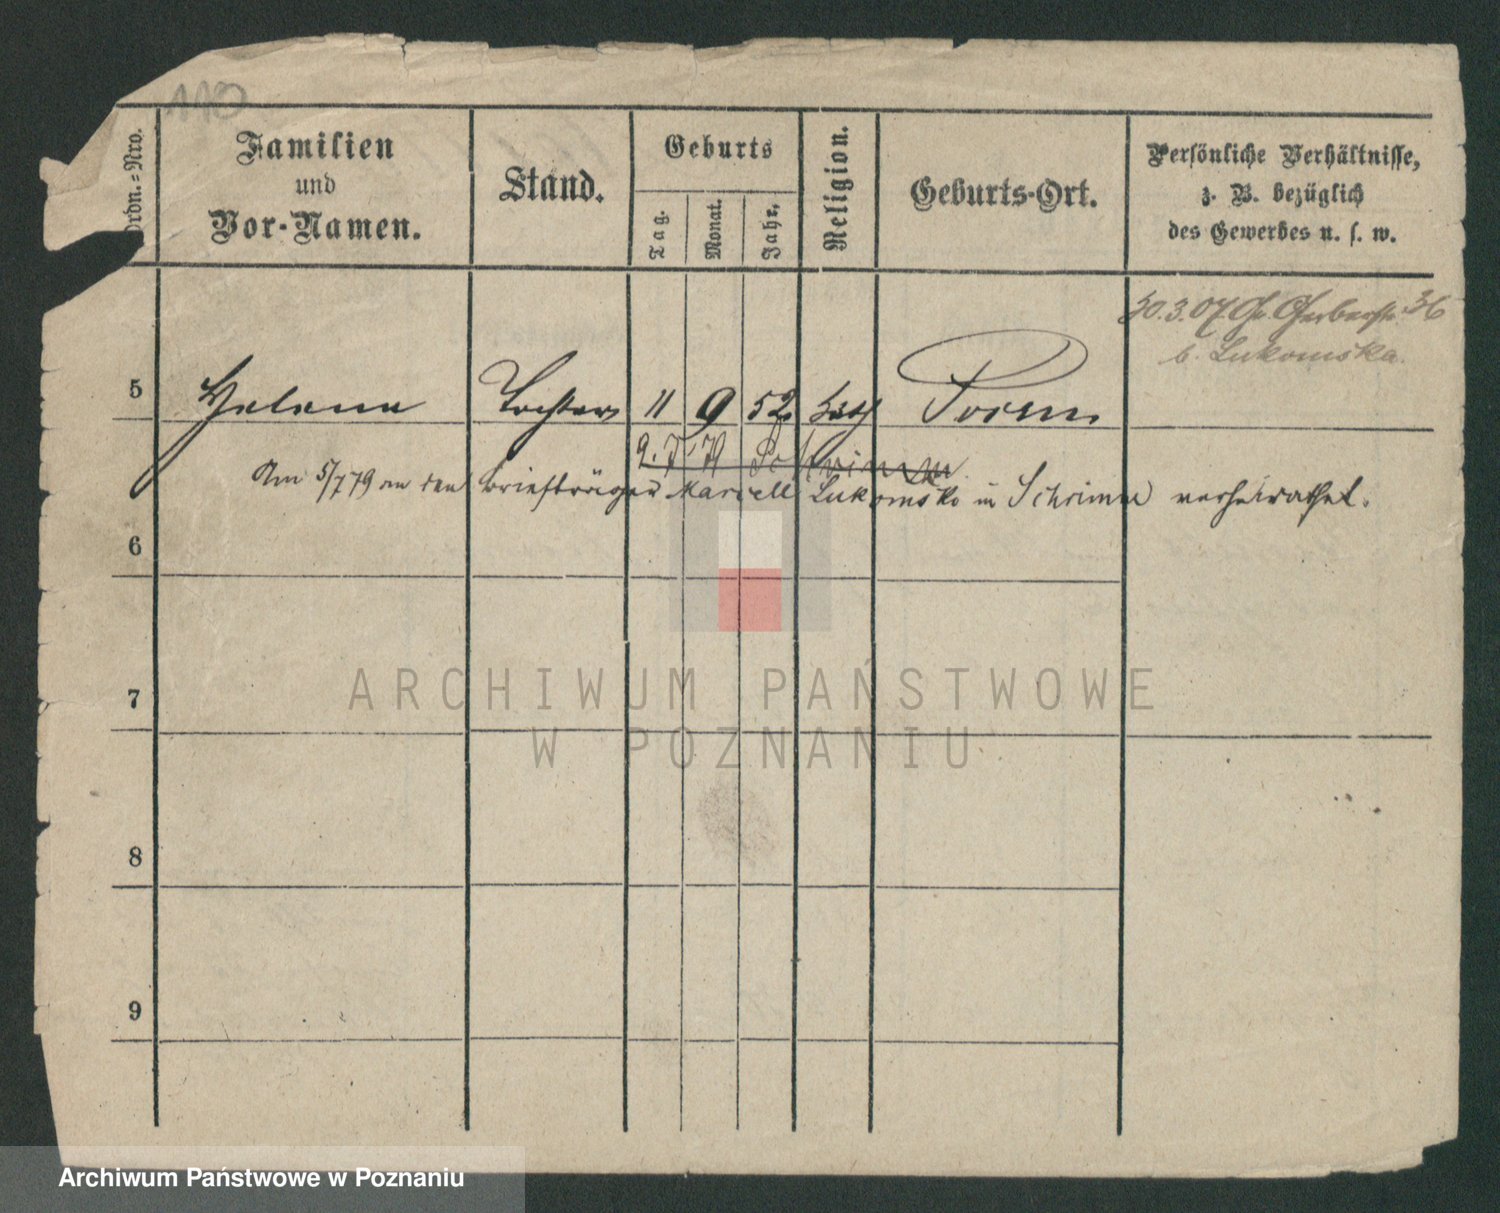 110
Ordn.-Nro.
Familien
und
Vor-Namen.
Stand.
Geburts
Tag.
Monat.
Jahr.
Religion.
Geburts-Ort.
Persönliche Verhältnisse,
z. B. bezüglich
des Gewerbes u. s. w.
30.3.07. Gr. Gerberstr. 36
b. Lukomska.
5 Helena Tochter 11 9 52 kath Posen
9.7.79 Schrimm
Am 5/7 79 an den Briefträger Marcell Lukomski in Schrimm verheirathet.
6
7
8
9
ARCHIWUM PAŃSTWOWE
W POZNANIU
Archiwum Państwowe w Poznaniu